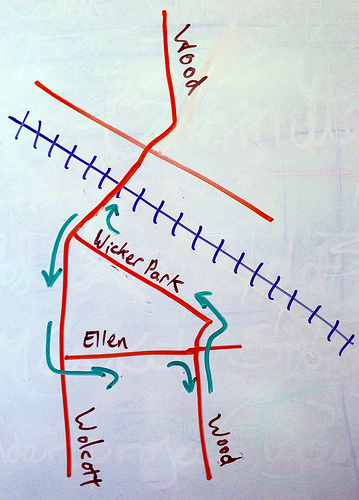 Wood
Wicker Park
Ellen
Wolcott
Wood